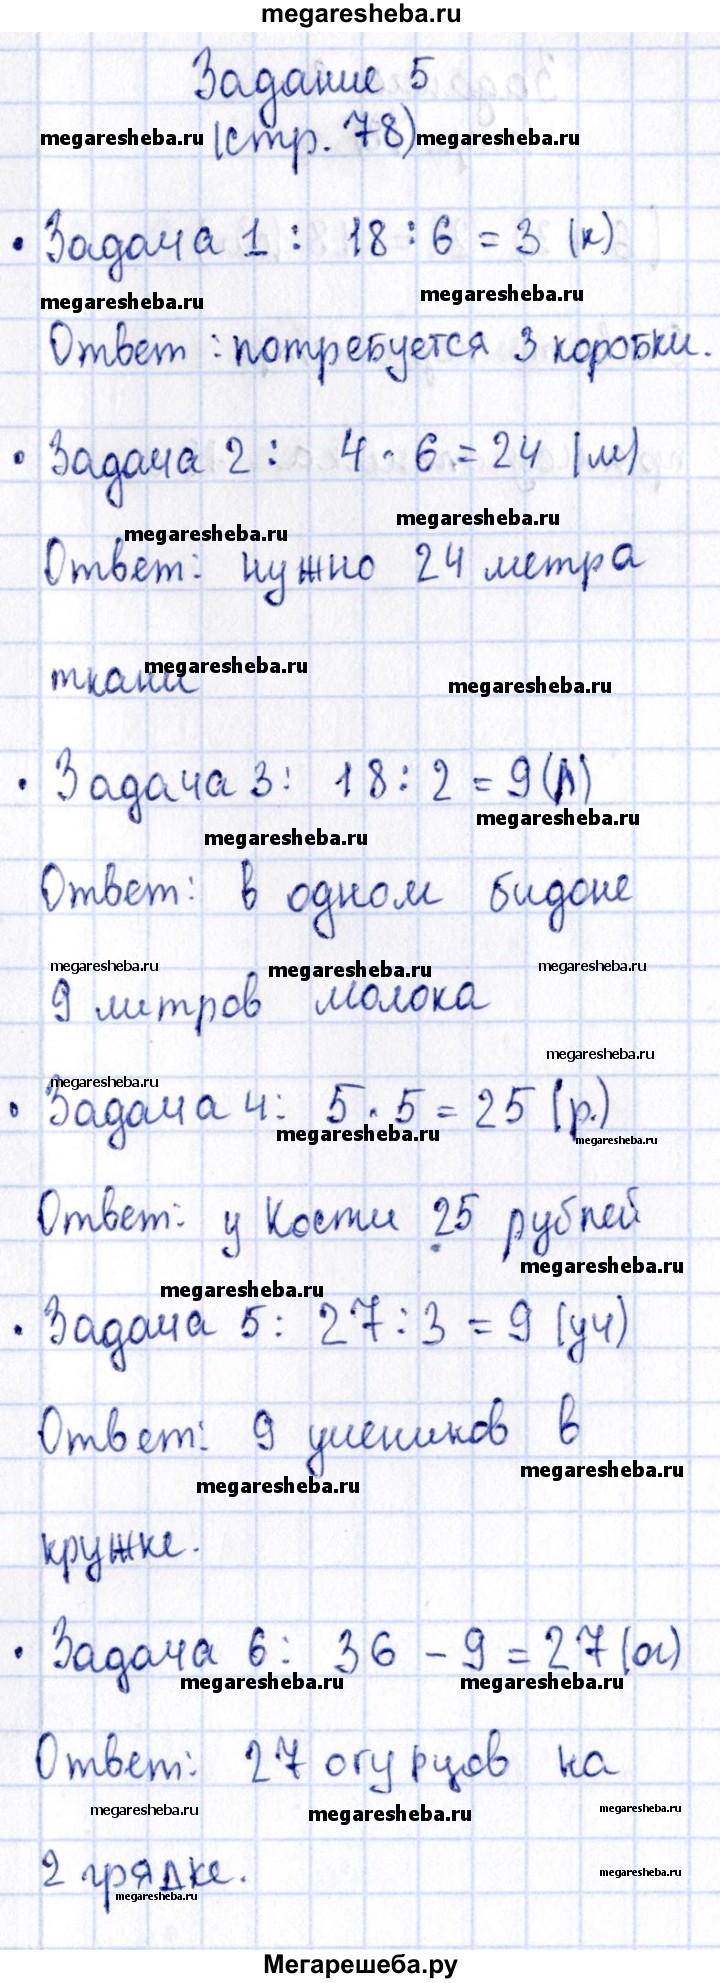 megaresheba.ru
Задание 5
megaresheba.ru (стр. 78) megaresheba.ru
• Задача 1: 18 : 6 = 3 (к)
megaresheba.ru megaresheba.ru
Ответ: потребуется 3 коробки.
• Задача 2: 4 · 6 = 24 (м)
megaresheba.ru megaresheba.ru
Ответ: нужно 24 метра
ткани megaresheba.ru megaresheba.ru
• Задача 3: 18 : 2 = 9 (л)
megaresheba.ru megaresheba.ru
Ответ: в одном бидоне
megaresheba.ru megaresheba.ru megaresheba.ru
9 литров молока
megaresheba.ru megaresheba.ru
• Задача 4: 5 · 5 = 25 (р.)
megaresheba.ru megaresheba.ru
Ответ: у Кости 25 рублей
megaresheba.ru megaresheba.ru
• Задача 5: 27 : 3 = 9 (уч)
Ответ: 9 учеников в
megaresheba.ru megaresheba.ru
кружке.
• Задача 6: 36 - 9 = 27 (ог)
megaresheba.ru megaresheba.ru
Ответ: 27 огурцов на
megaresheba.ru megaresheba.ru megaresheba.ru
2 грядке. megaresheba.ru
megaresheba.ru
Мегарешеба.ру